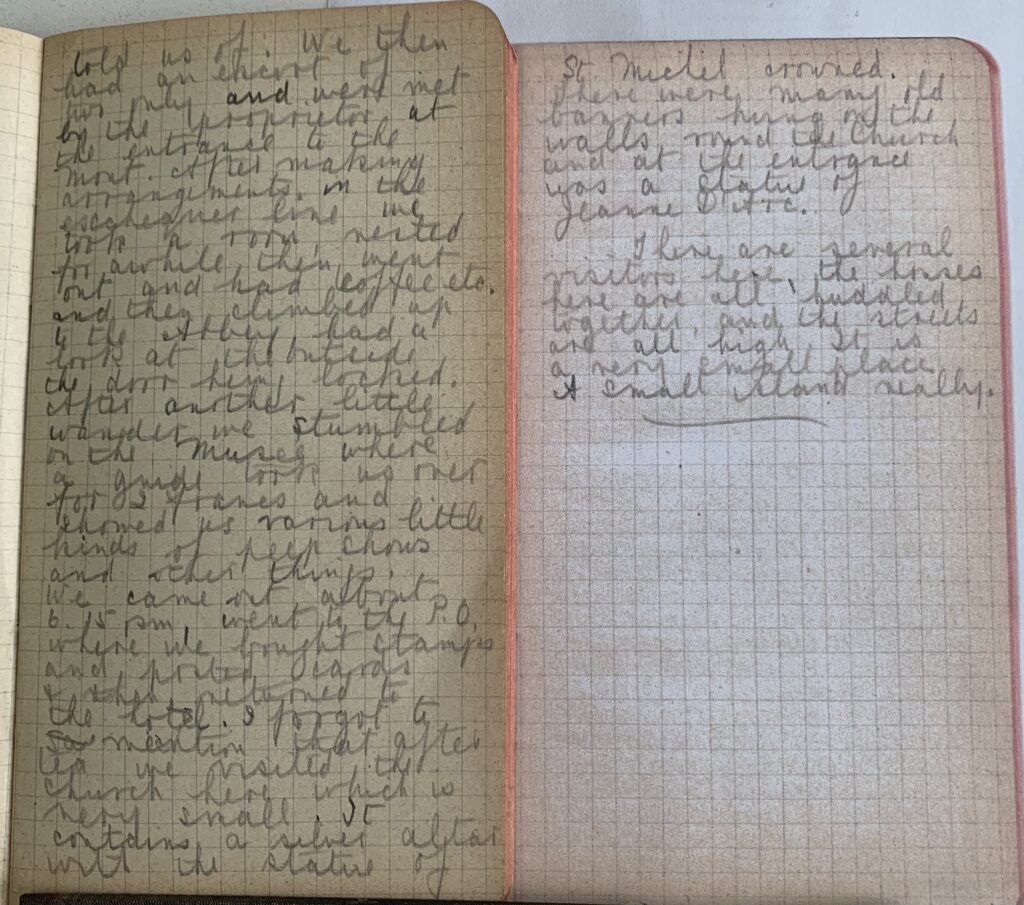 told us of. We then
had an escort of
two only and were met
by the proprietor at
the entrance to the
Mont. After making
arrangements in the
exchequer line we
took a room, rested
for awhile then went
out and had coffee etc.
and then climbed up
to the Abbey had a
look at the outside
the door being locked.
After another little
wander we stumbled
on the Musee where
a guide took us over
for 2 francs and
showed us various little
kinds of peep shows
and other things.
We came out about
6.15 pm, went to the P.O.
where we bought stamps
and posted cards
& then returned to
the hotel. I forgot to
mention that after
tea we visited the
church here which is
very small. It
contains a silver altar
with the statue of
St Michel crowned.
There were many old
banners hung on the
walls, round the Church
and at the entrance
was a statue of
Jeanne D'Arc.
There are several
visitors here, the houses
here are all huddled
together, and the streets
are all high. It is
a very small place
A small island really.